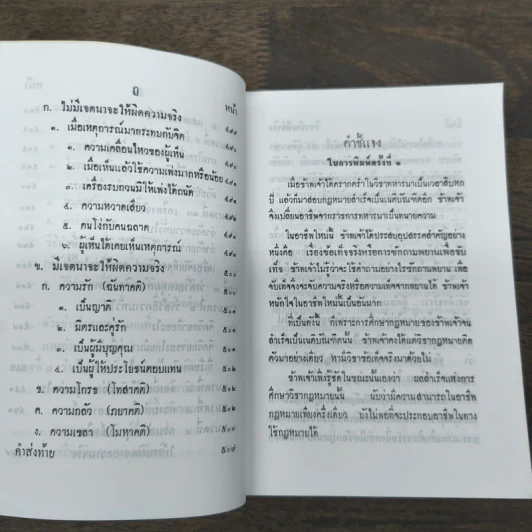 ฎ
หน้า
ก. ไม่มีเจตนาจะให้ผิดความจริง ๔๙๙
๑. เมื่อเหตุการณ์มากระทบกับจิต ๔๙๙
๑. ความเคลื่อนไหวของผู้เห็น
๒. เมื่อเห็นแล้วใช้ความเพ่งมากหรือน้อย
๓. เครื่องรบกวนมิให้เพ่งได้ถนัด
๔. ความหวาดเสียว
๕. คนโง่กับคนฉลาด
๖. ผู้เห็นได้เคยเห็นเหตุการณ์
ข. มีเจตนาจะให้ผิดความจริง ๕๐๑
ก. ความรัก (ฉันทาคติ) ๕๐๑
๑. เป็นญาติ ๕๐๑
๒. มิตรและคู่รัก ๕๐๑
๓. เป็นผู้มีบุญคุณ ๕๐๑
๔. เป็นผู้ให้ประโยชน์ตอบแทน ๕๐๒
ข. ความโกรธ (โทสาคติ) ๕๐๒
ค. ความกลัว (ภยาคติ) ๕๐๒
ง. ความเขลา (โมหาคติ) ๕๐๒
คำส่งท้าย ๕๐๗
คำชี้แจง
ในการพิมพ์ครั้งที่ ๑
เมื่อข้าพเจ้าได้ตรากตรำในวิชาทหารมาเป็นเวลาสิบหก
ปี แล้วก็มาสอบกฎหมายสำเร็จเป็นเนติบัณฑิตอีก ข้าพเจ้า
จึงเปลี่ยนอาชีพจากราชการทหารมาเป็นทนายความ
ในอาชีพใหม่นี้ ข้าพเจ้าได้ประสบอุปสรรคสำคัญอย่าง
หนึ่งคือ เรื่องข้อเท็จจริงหรือการซักถามพยานเพื่อจับ
เท็จ ข้าพเจ้าไม่รู้ว่าจะใช้คำถามอย่างไรซักถามพยาน เพื่อ
จับเท็จจึงจะจับความจริงหรือความเท็จจากพยานได้ ข้าพเจ้า
หนักใจในอาชีพใหม่นี้เป็นอันมาก
ที่เป็นดั่งนี้ ก็เพราะการศึกษากฎหมายของข้าพเจ้าจน
สำเร็จเป็นเนติบัณฑิตนั้น ข้าพเจ้าคงได้แต่วิชากฎหมายติด
ตัวมาอย่างเดียว หามีวิชาข้อเท็จจริงมาด้วยไม่
ข้าพเจ้าเพิ่งรู้ชัดในขณะนั้นเองว่า ผลสำเร็จแห่งการ
ศึกษาวิชากฎหมายนั้น นับว่ามีความสามารถในอาชีพ
กฎหมายเพียงครึ่งเดียว ยังไม่พอที่จะประกอบอาชีพในทาง
ใช้กฎหมายได้